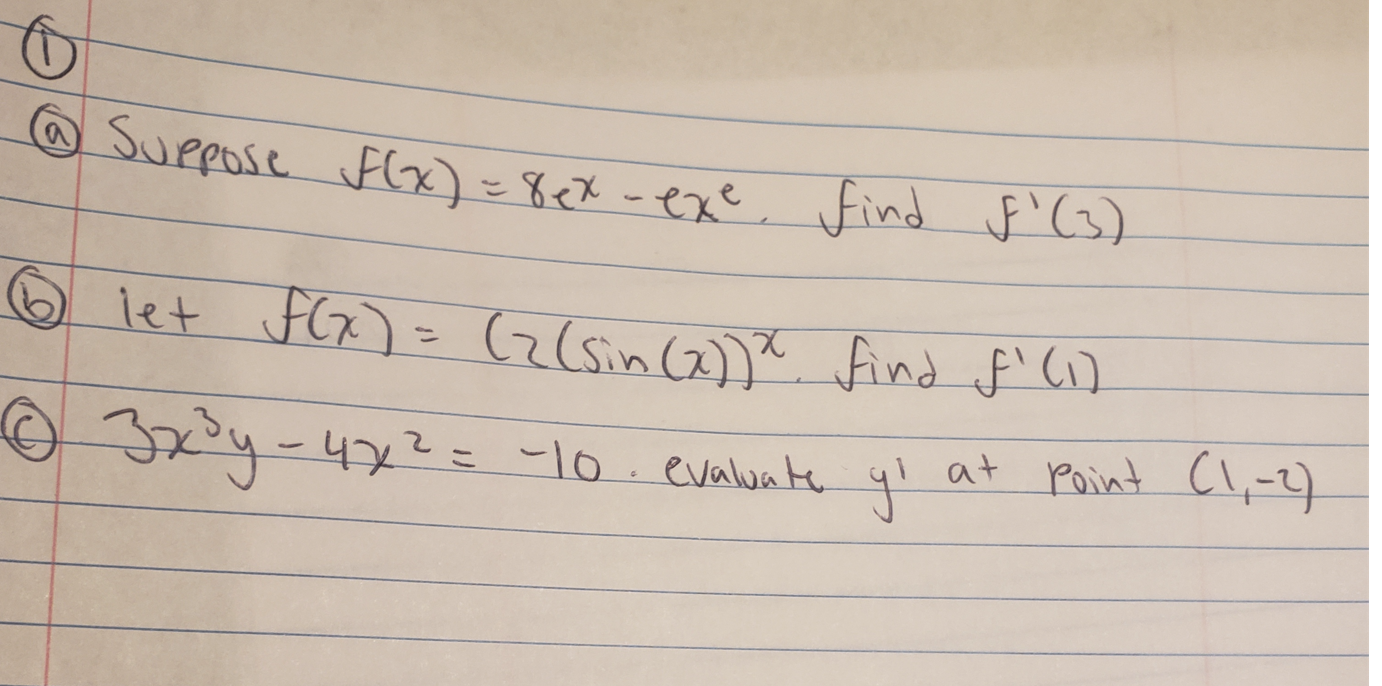 ①
ⓐ Suppose f(x) = 8eˣ - exᵉ. find f'(3)
ⓑ let f(x) = (2(sin(x))ˣ. find f'(1)
ⓒ 3x³y - 4x² = -10. evaluate y' at point (1,-2)